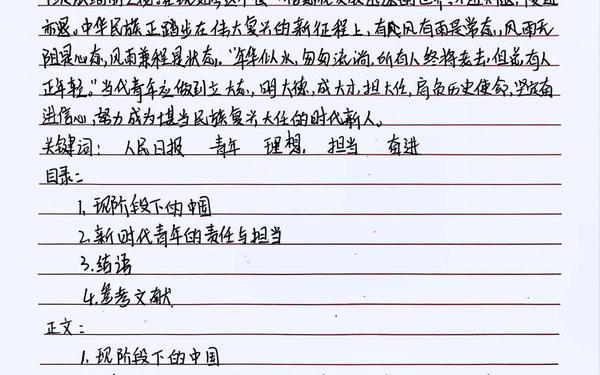 亦惑。中华民族正踏步在伟大复兴的新征程上，有风有雨是常态，风雨无
阻是心态，风雨兼程是状态。“年华似水，匆匆流淌，所有人终将老去，但总有人
正年轻。”当代青年应做到立大志，明大德，成大才，担大任，肩负历史使命，坚定奋
进信心，努力成为堪当民族复兴大任的时代新人。
关键词： 人民日报 青年 理想． 担当 奋进
目录：
1．现阶段下的中国
2．新时代青年的责任与担当
3．结语
4．参考文献
正文：
1．现阶段下的中国